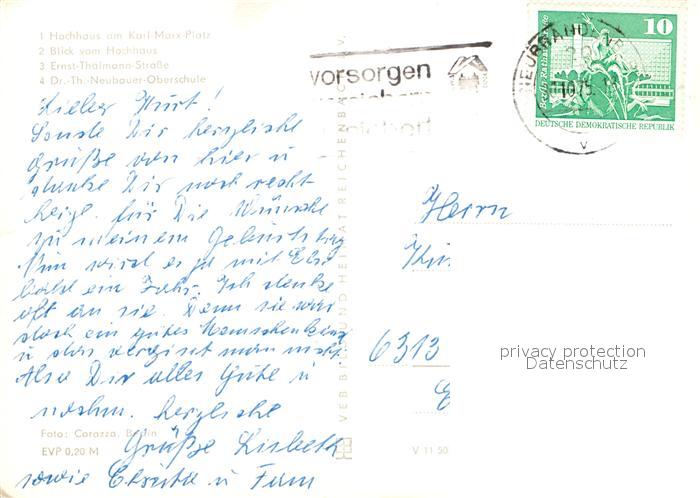 1 Hochhaus am Karl-Marx-Platz
2 Blick vom Hochhaus
3 Ernst-Thälmann-Straße
4 Dr.-Th.-Neubauer-Oberschule
Lieber Kurt!
Sende Dir herzliche
Grüße von hier u
danke Dir noch recht
herzl. für Die Wünsche
zu meinem Geburtstag
Nun wird es ja mit Else
bald ein Jahr. Ich denke
oft an sie. Denn sie war
doch ein gutes Menschenkind
u das vergisst man nicht.
Also Dir alles Gute u
nochm. herzliche
Grüße Lisbeth
sowie Christa u Fam
Foto: Corazza, Berlin
EVP 0,20 M
VEB BILD UND HEIMAT REICHENBACH I. V.
V 11 50
vorsorgen
NEUBRANDENBURG
10
DEUTSCHE DEMOKRATISCHE REPUBLIK
Herrn
6313
privacy protection
Datenschutz